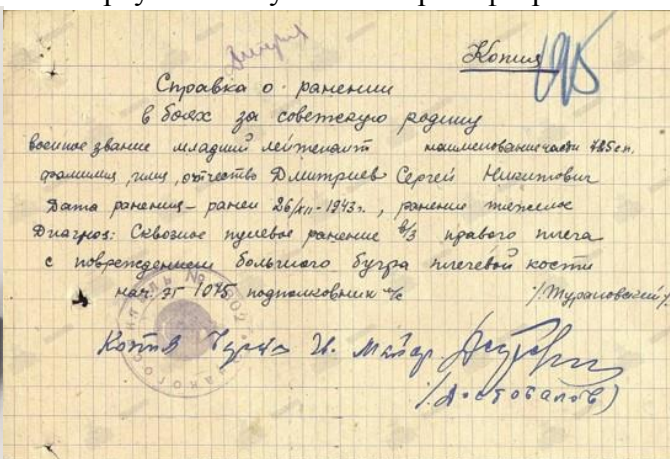 Копия
195
Справка о ранении
в боях за советскую родину
военное звание младший лейтенант наименование части 785 сп.
фамилия, имя, отчество Дмитриев Сергей Никитович
Дата ранения – ранен 26/XII-1943г., ранение тяжелое
Диагноз: Сквозное пулевое ранение в/3 правого плеча
с повреждением большого бугра плечевой кости
нач. ЭГ 1045 подполковник м/с /Турановский/
Копия верна
майор
/Достовалов/